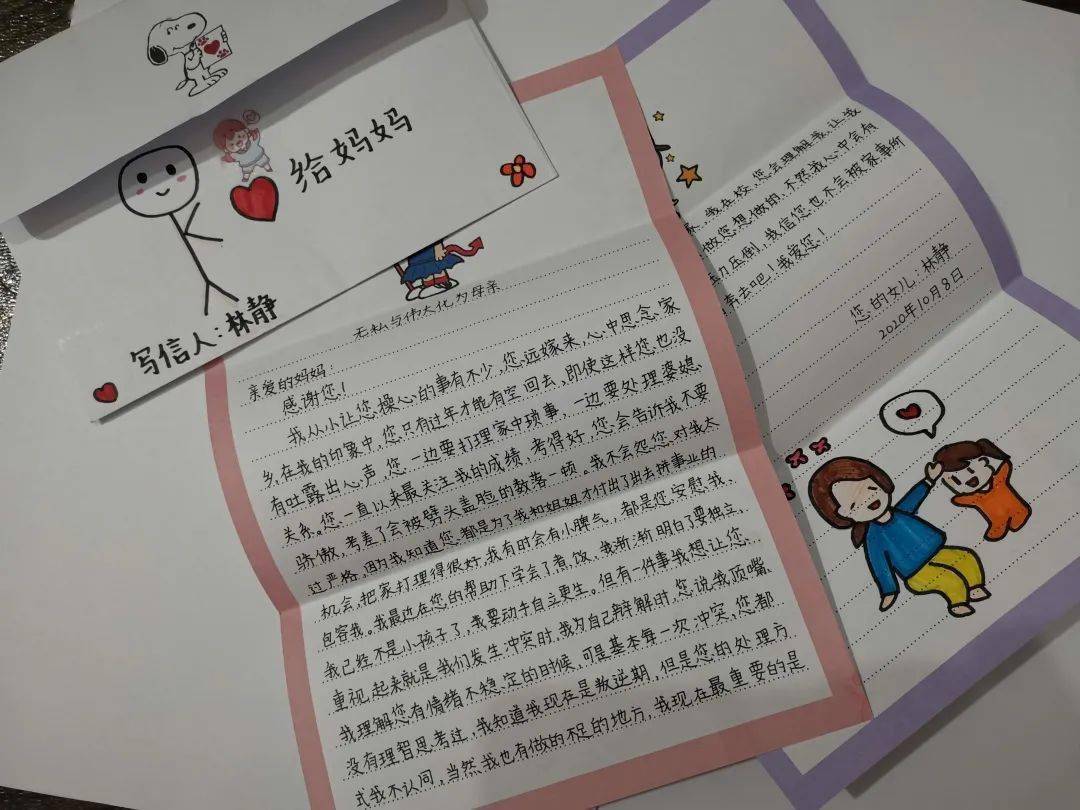 给妈妈
写信人：林静
无私与伟大化为母亲
亲爱的妈妈：
感谢您！
我从小让您操心的事有不少，您远嫁来，心中思念家
乡，在我的印象中，您只有过年才能有空回去，即使这样您也没
有吐露出心声，您一边要打理家中琐事，一边要处理婆媳
关系。您一直以来最关注我的成绩，考得好，您会告诉我不要
骄傲，考差了会被劈头盖脸的数落一顿。我不会怨您对我太
过严格，因为我知道您都是为了我和姐姐才付出了出去拼事业的
机会，把家打理得很好，我有时会有小脾气，都是您安慰我、
包容我。我最近在您的帮助下学会了煮饭，我渐渐明白了要独立、
我已经不是小孩子了，我要动手自立更生。但有一件事我想让您
重视起来就是我们发生冲突时，我为自己辩解时，您说我顶嘴，
我理解您有情绪不稳定的时候，可是基本每一次冲突，您都
没有理智思考过，我知道我现在是叛逆期，但是您的处理方
式我不认同，当然我也有做的不足的地方，我现在最重要的是
，我在校，您会理解我，让我
做您想做的，不然我心中会有
压力压倒，我信您也不会被家事所
去吧！我爱您！
您的女儿：林静
2020年10月8日